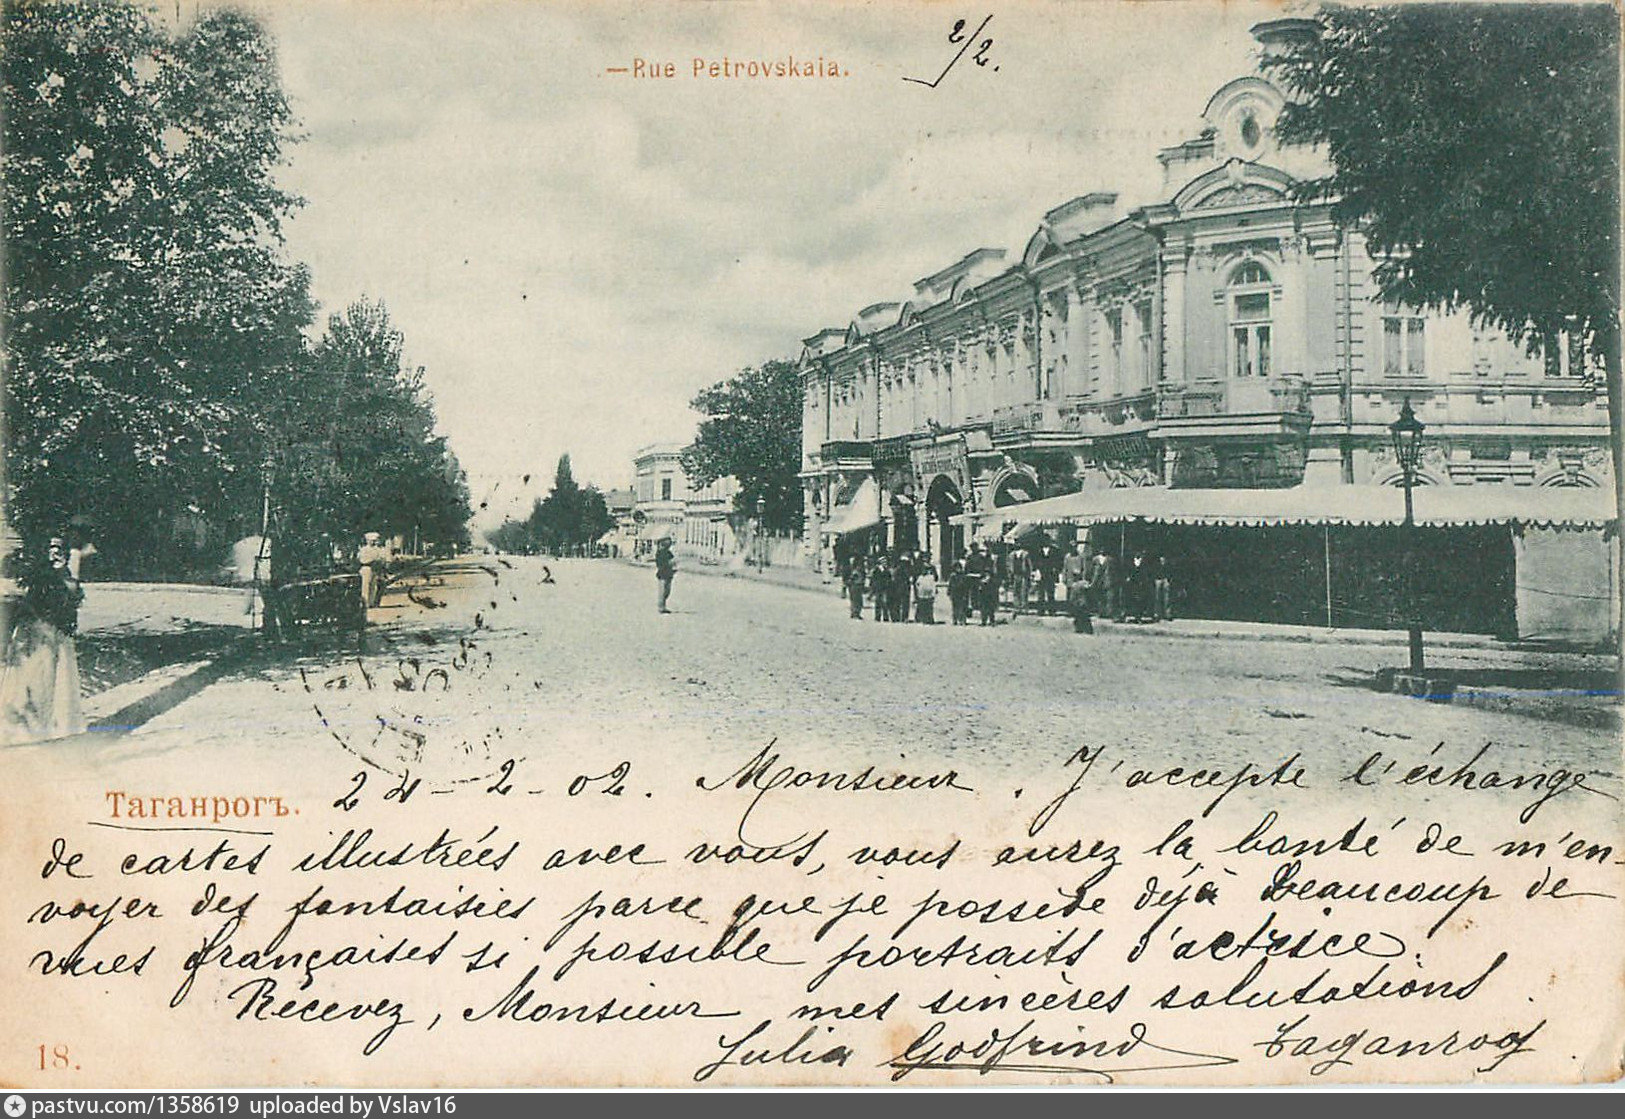 —Rue Petrovskaia.
2/2.
Таганрогъ.
24-2-02. Monsieur. J'accepte l'échange
de cartes illustrées avec vous, vous aurez la bonté de m'en-
voyer des fantaisies parce que je possède déjà beaucoup de
vues françaises si possible portraits d'actrice.
Récevez, Monsieur mes sincères salutations.
Julia Godfrind Taganrog.
18.
pastvu.com/1358619 uploaded by Vslav16